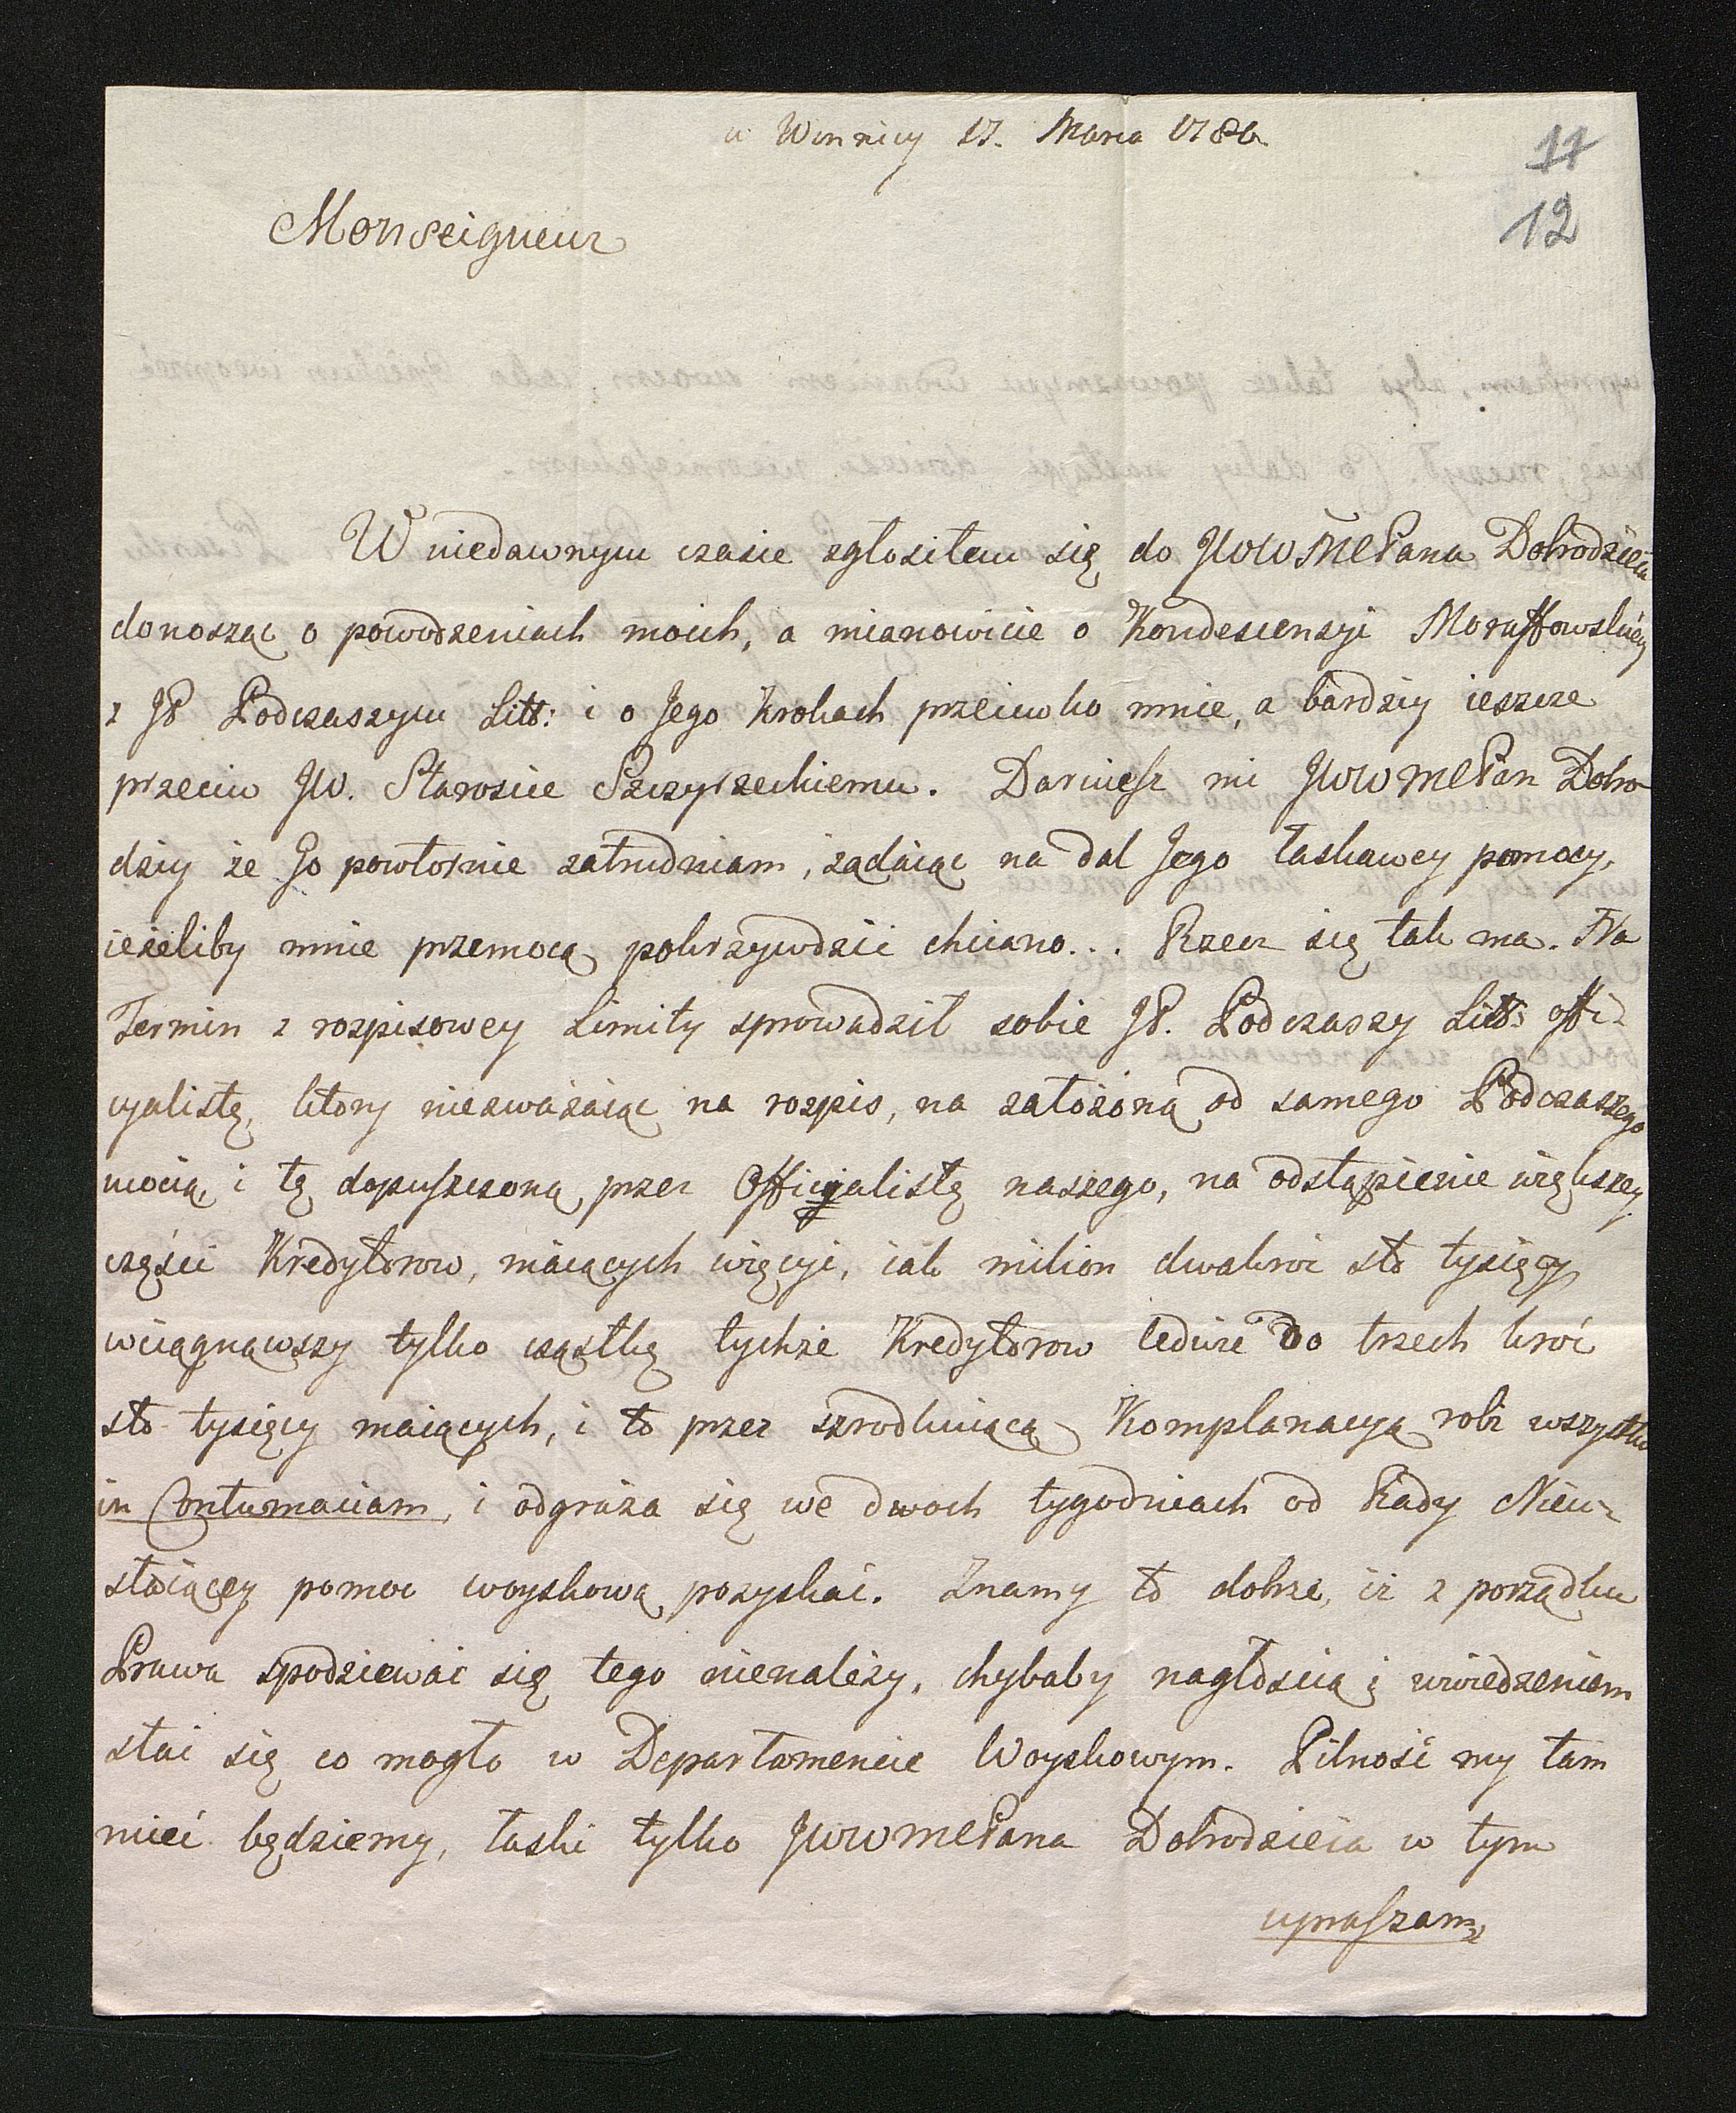 a Winnicy 17. Marca 1786
11
12
Monseigneur
W niedawnym czasie zgłosiłem się do JWWMCPana Dobrodzieia
donosząc o powodzeniach moich, a mianowicie o Kondescensyi Moraffowskiey
z JP Podczaszym Litt: i o Jego Krokach przeciwko mnie, a bardziy ieszcze
przeciw JW. Staroscie Szczyrzeckiemu. Daruiesz mi JWWMCPan Dobro
dziy że Go powtornie zatrudniam, żądaiąc na dal Jego łaskawey pomocy,
ieżeliby mnie przemocą pokrzywdzić chciano... Rzecz się tak ma. Na
Termin z rozpisowey Limity sprowadził sobie JP. Podczaszy Litt: offi-
cyalistę, ktory niezważaiąc na rozpis, na założoną od samego Podczaszego
mocią i tę dopuszczoną przez Officyalistę naszego, na odstąpienie większey
części Kredytorow, maiących więcyi, iak milion dwakroć sto tysięcy
wciągnąwszy tylko cząstkę tychże Kredytorow ledwie do trzech kroć
sto tysięcy maiących, i to przez szrodkuiącą Komplanacyą robi wszystko
in Contumaciam, i odgraża się we dwoch tygodniach od Rady Nieu-
staiącey pomoc woyskową pozyskać. Znamy to dobrze, iż z porządku
Prawa spodziewać się tego nienależy, chybaby nagłoscią i uwiedzeniem
stać się co mogło w Departamencie Woyskowym. Pilność my tam
mieć będziemy, łaski tylko JWWMCPana Dobrodzieia w tym
upraszam